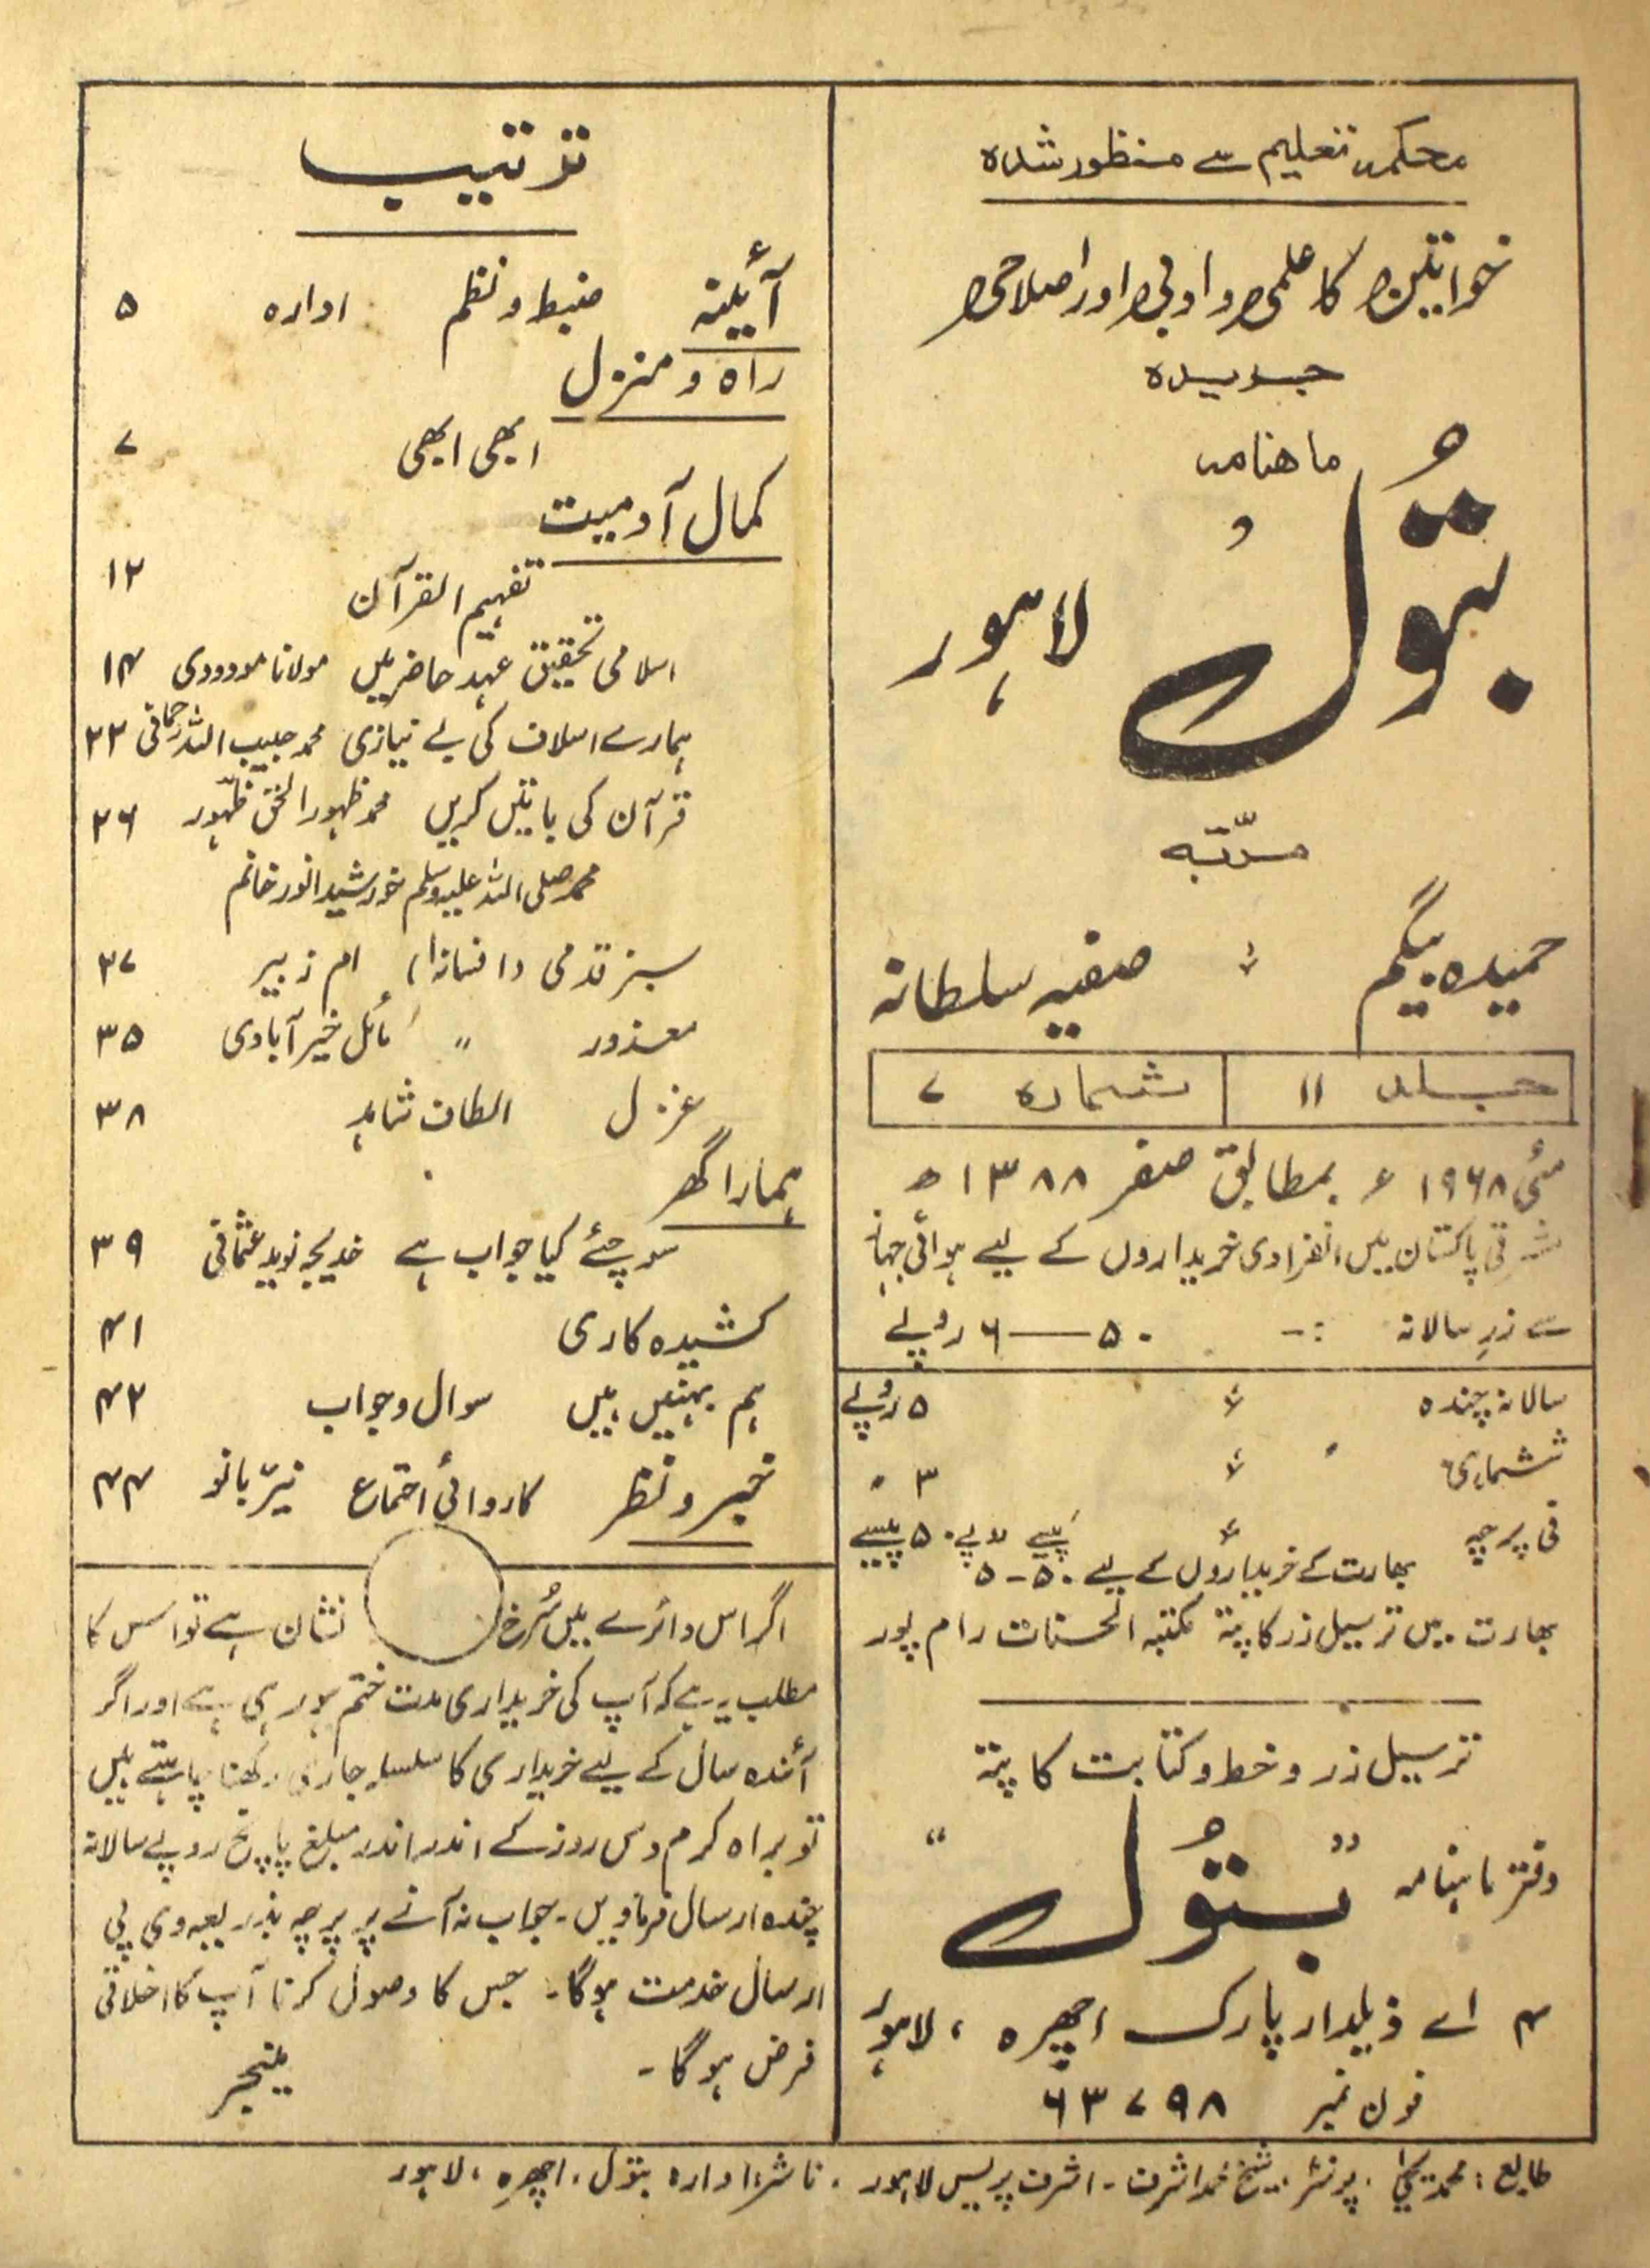 محکمہ تعلیم سے منظور شدہ
خواتین کا علمی و ادبی اور اصلاحی
جریدہ
ماهنامہ
بتُول لاہور
مرتبہ
حمیدہ بیگم ؛ صفیہ سلطانہ
جلد ۱۱ شمارہ ۷
مئی ۱۹۶۸ء بمطابق صفر ۱۳۸۸ھ
مشرقی پاکستان میں انفرادی خریداروں کے لیے ہوائی جہاز
سے زرِ سالانہ :- ۵۰—۶ روپے
سالانہ چندہ ؛ ۵ روپے
ششماہی ؛ ۳ "
فی پرچہ ؛ ۵۰ پیسے
بھارت کے خریداروں کے لیے ۵۰-۵ روپے پیسے
بھارت میں ترسیل زر کا پتہ مکتبہ الحسنات رام پور
ترسیل زر و خط و کتابت کا پتہ
دفتر ماہنامہ "بتُول"
۴ اے ذیلدار پارک اچھرہ ، لاہور
فون نمبر ۶۳۷۹۸
ترتیب
آئینہ ضبط و نظم ادارہ ۵
راہ و منزل
ابھی ابھی ۷
کمال آدمیت
تفہیم القرآن ۱۲
اسلامی تحقیق عہد حاضر میں مولانا مودودی ۱۴
ہمارے اسلاف کی بے نیازی محمد حبیب اللہ رحمانی ۲۲
قرآن کی باتیں کریں محمد ظہور الحق ظہور ۲۶
محمد صلی اللہ علیہ وسلم خورشید انور خانم
سبز قدمی (افسانہ) ام زبیر ۲۷
معذور " مائل خیر آبادی ۳۵
غزل الطاف شاہد ۳۸
ہمارا گھر
سوچئے کیا جواب ہے خدیجہ نوید عثمانی ۳۹
کشیدہ کاری ۴۱
ہم بہنیں ہیں سوال و جواب ۴۲
خبر و نظر کاروائی اجتماع نیّر بانو ۴۴
اگر اس دائرے میں سُرخ نشان ہے تو اس کا
مطلب یہ ہے کہ آپ کی خریداری مدت ختم ہو رہی ہے اور اگر
آئندہ سال کے لیے خریداری کا سلسلہ جاری رکھنا چاہتے ہیں
تو براہ کرم دس روز کے اندر اندر مبلغ پانچ روپے سالانہ
چندہ ارسال فرماویں۔ جواب نہ آنے پر پرچہ بذریعہ وی پی
ارسال خدمت ہوگا۔ جس کا وصول کرنا آپ کا اخلاقی
فرض ہوگا۔ مینجر
طابع : محمد یحییٰ . پرنٹر : شیخ محمد اشرف - اشرف پریس لاہور . ناشر : ادارہ بتول ، اچھرہ ، لاہور